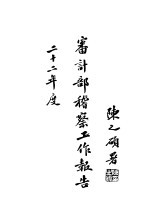 陳之碩署
審計部稽察工作報告
二十二年度